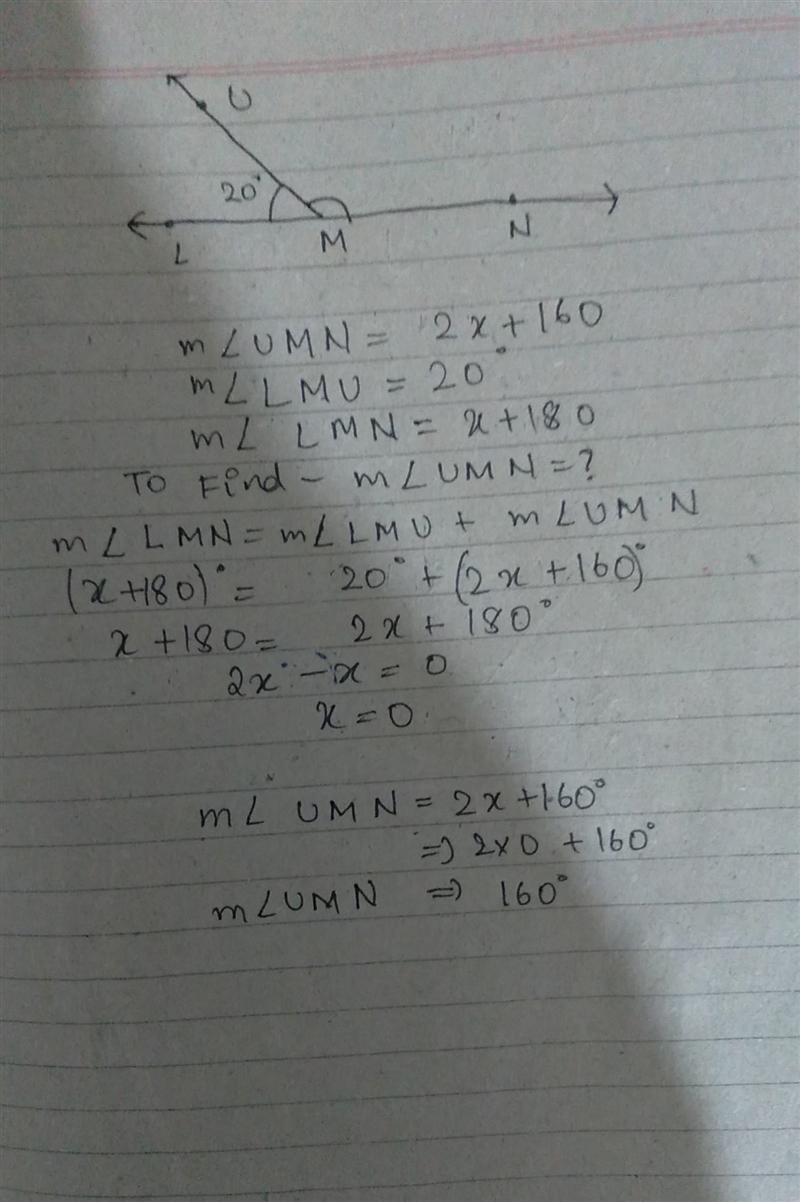 U
20°
L M N
m∠UMN = 2x+160
m∠LMU = 20°
m∠ LMN = x+180
TO Find - m∠UMN = ?
m∠LMN = m∠LMU + m∠UMN
(x+180)° = 20° + (2x+160)°
x+180 = 2x+180°
2x - x = 0
x = 0
m∠ UMN = 2x+160°
⇒ 2×0 + 160°
m∠UMN ⇒ 160°